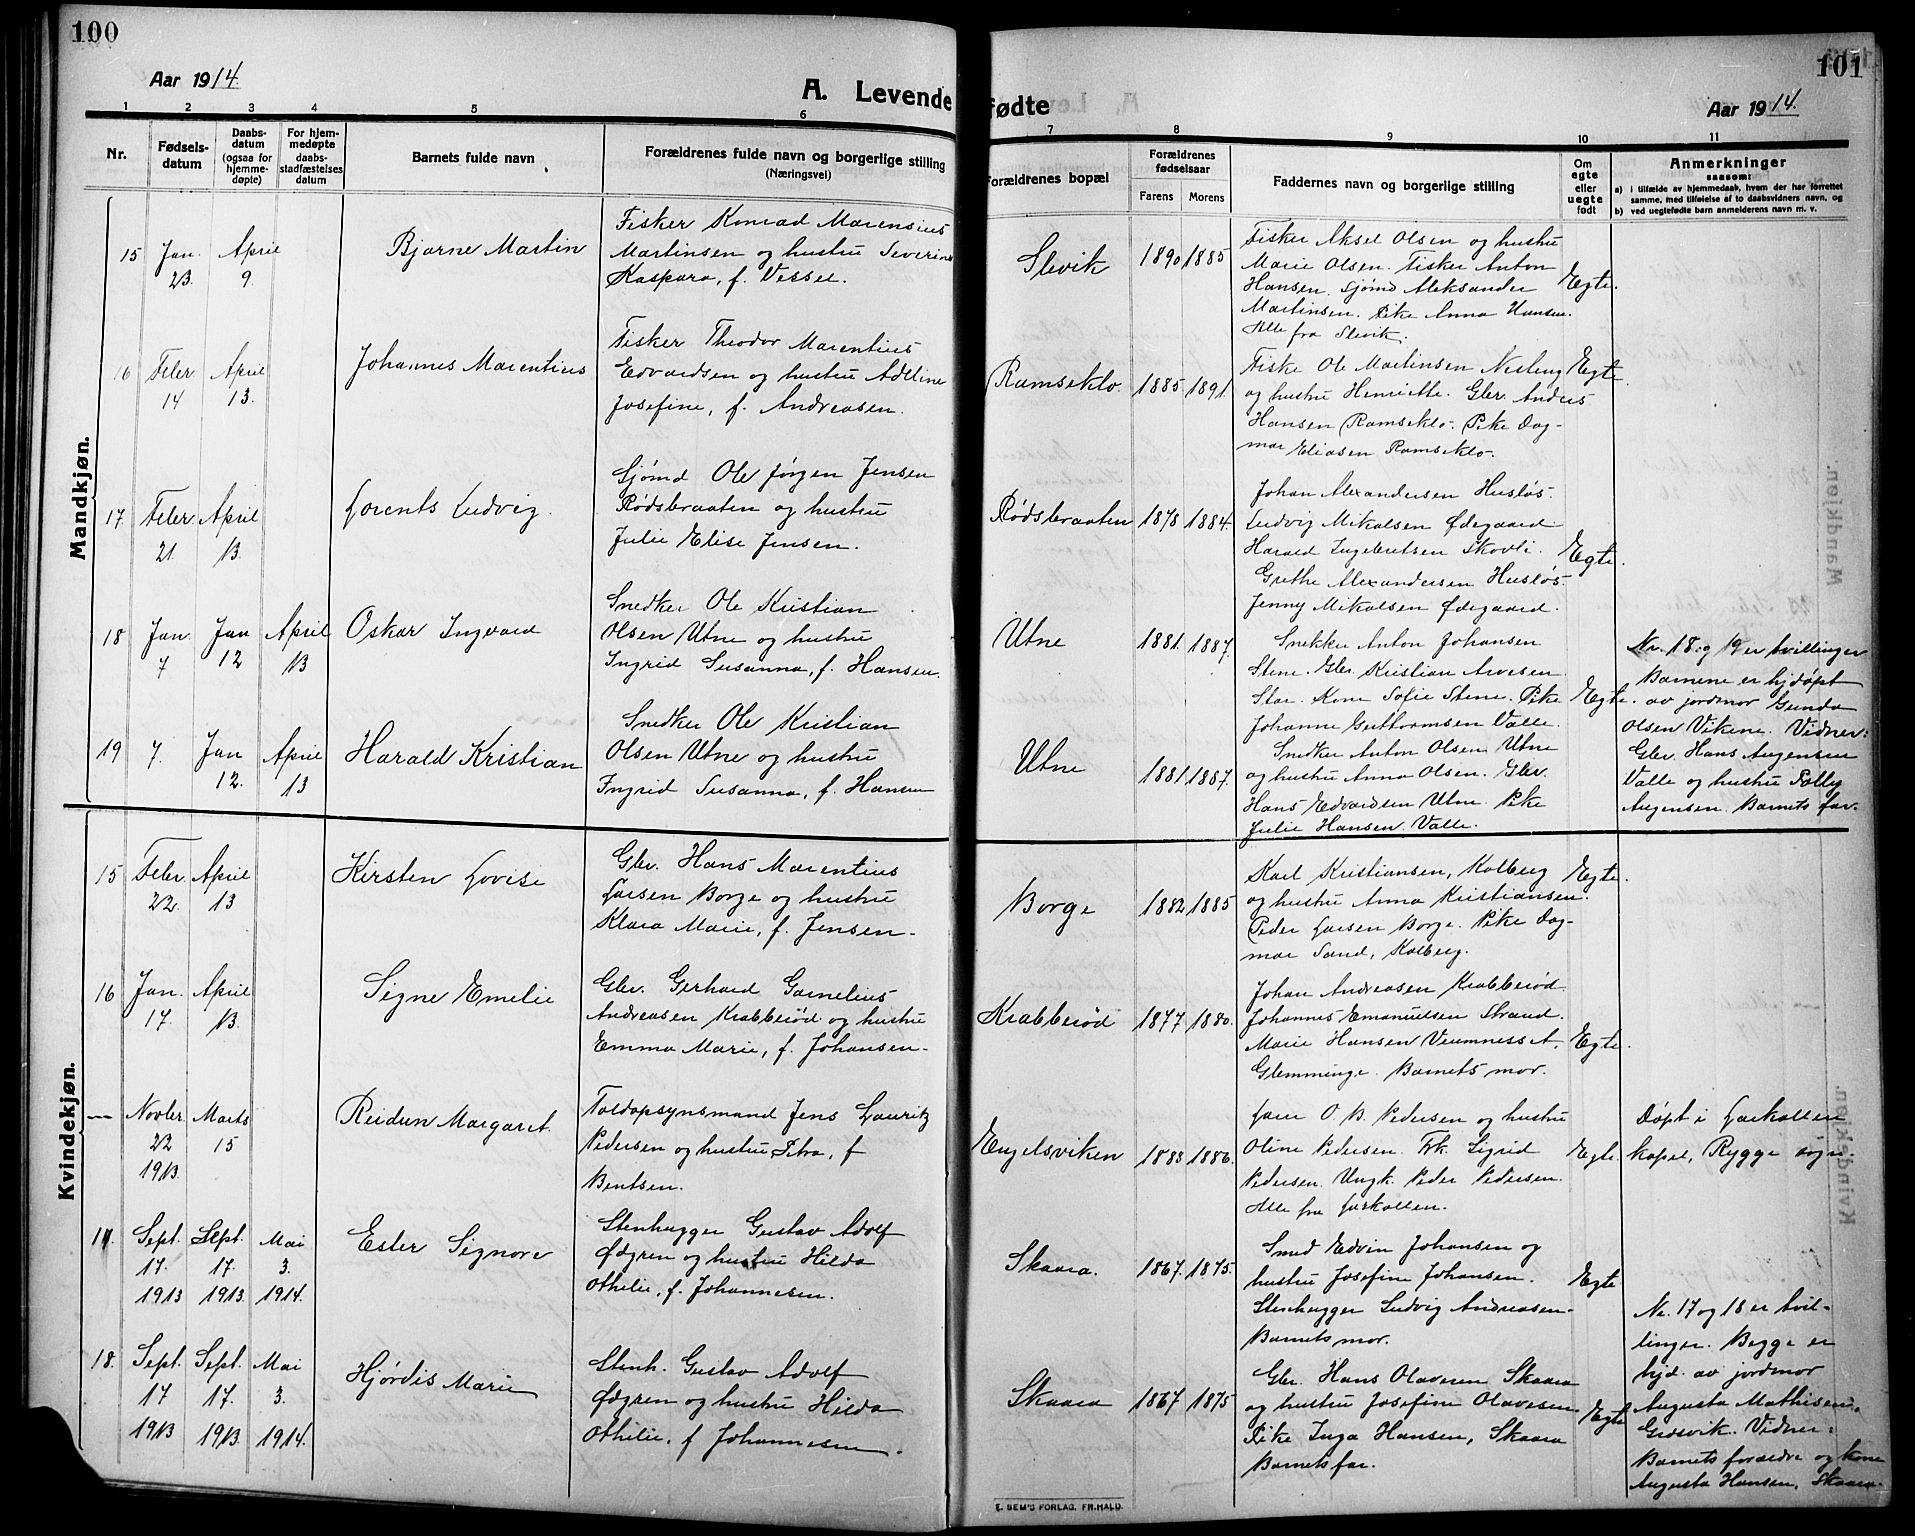 100
Aar 1914.
A. Levende
1 2 3 4 5 6
Nr.
Fødsels-
datum
Daabs-
datum
(ogsaa for
hjemme-
døpte)
For hjem-
medøpte
daabs-
stadfæstelses
datum
Barnets fulde navn
Forældrenes fulde navn og borgerlige stilling
(Næringsvei)
Mandkjøn.
15 Jan. 23. April 9. Bjarne Martin
Fisker Konrad Marensius
Martinsen og hustru Severine
Kaspara, f. Vessel.
16 Febr. 14 April 13. Johannes Marentius
Fisker Theodor Marentius
Edvardsen og hustru Adeline
Josefine, f. Andreasen.
17. Febr. 21 April 13. Lorents Ludvig.
Sjømd Ole Jørgen Jensen
Rødsbraaten og hustru
Julie Elise Jensen.
18 Jan. 7 Jan 12 April 13 Oskar Ingvard
Snedker Ole Kristian
Olsen Utne og hustru
Ingrid Susanna, f. Hansen.
19 7. Jan 12. April 13 Harald Kristian
Snedker Ole Kristian
Olsen Utne og hustru
Ingrid Susanna, f. Hansen
Kvindekjøn.
15 Febr. 22. April 13 Kirsten Lovise
Gbr. Hans Marentius
Larsen Borge og hustru
Klara Marie, f. Jensen.
16 Jan. 17. April 13. Signe Emelie
Gbr. Gerhard Gornelius
Andreasen Krabberød og hustru
Emma Marie, f. Johansen.
— Novbr 22 1913. Marts 15 Reidun Margaret.
Toldopsynsmand Jens Lauritz
Pedersen og hustru Petra, f
Bentsen.
17. Sept. 17. 1913 Sept. 17. 1913. Mai 3. 1914. Ester Signore
Stenhugger Gustav Adolf
Ødgren og hustru Hilda
Othilie, f. Johannesen.
18. Sept. 17 1913 Sept. 17. 1913. Mai 3. 1914. Hjørdis Marie
Stenh. Gustav Adolf
Ødgren og hustru Hilda
Othilie, f Johannesen.
101
fødte
Aar 1914.
7 8 9 10 11
Forældrenes bopæl
Forældrenes
fødselsaar
Farens Morens
Faddernes navn og borgerlige stilling
Om
egte
eller
uegte
født
Anmerkninger
saasom:
a) i tilfælde av hjemmedaab, hvem der har forrettet
samme, med tilføielse af to daabsvidners navn, og
b) ved uegtefødte barn anmelderens navn m. v.
Slevik 1890 1885
Fisker Aksel Olsen og hustru
Marie Olsen. Fisker Anton
Hansen. Sjømd Aleksander
Martinsen. Pike Anna Hansen.
Alle fra Slevik.
Egte.
Ramseklo. 1885 1891.
Fiske Ole Martinsen Nesteng
og hustru Henriette. Gbr. Anders
Hansen Ramseklo. Pike Dag-
mar Eliasen Ramseklo.
Egte.
Rødsbraaten 1878 1884.
Johan Alexandersen Husløs.
Ludvig Mikalsen Ødegaard
Harald Ingebretsen Skovli.
Grethe Alexandersen Husløs.
Jenny Mikalsen Ødegaard.
Egte.
Utne 1881. 1887.
Snekker Anton Johansen
Stene. Gbr. Kristian Arvesen
Star. Kone Sofie Stene. Pike
Johanne Guttormsen Valle.
Egte.
Nr. 18 og 19 er tvillinger
Barnene er hjdøpt
av jordmor Gunda
Olsen Vikene. Vidner:
Gbr. Hans Augensen
Valle og hustru Polly
Augensen. Barnets far.
Utne 1881. 1887.
Snedker Anton Olsen Utne
og hustru Anna Olsen. Gbr.
Hans Edvardsen Utne. Pike
Julie Hansen Valle.
Borge 1882 1885
Karl Kristiansen, Kolberg
og hustru Anna Kristiansen.
Peder Larsen Borge. Pike Dag-
mar Sand, Kolberg.
Egte.
Krabberød 1877 1880.
Johan Andreasen Krabberød.
Johannes Emanuelsen Strand.
Marie Hansen
Glemminge. Barnets mor.
Egte.
Engelsviken 1883 1886.
O. B. Pedersen og hustru
Oline Pedersen. Frk. Sigrid
Pedersen. Ungk. Peder Pedersen.
Alle fra Larkollen.
Egte.
Døpt i Larkollen
kapel, Rygge sogn.
Skaara. 1867. 1875.
Smed Edvin Johansen og
hustru Josefine Johansen.
Stenhugger Ludvig Andreasen.
Barnets mor.
Egte
Nr. 17 og 18 er tvil-
linger. Begge er
hjd. av jordmor
Augusta Mathisen,
Gresvik. Vidner:
Barnets forældre og kone
Augusta Hansen, Skaara.
Skaara 1867 1875
Gbr. Hans Olavesen Skaara
og hustru Josefine Olavesen
Pike Inga Hansen, Skaara
Barnets far.
Egte
E. SEM'S FORLAG. FR.HALD.